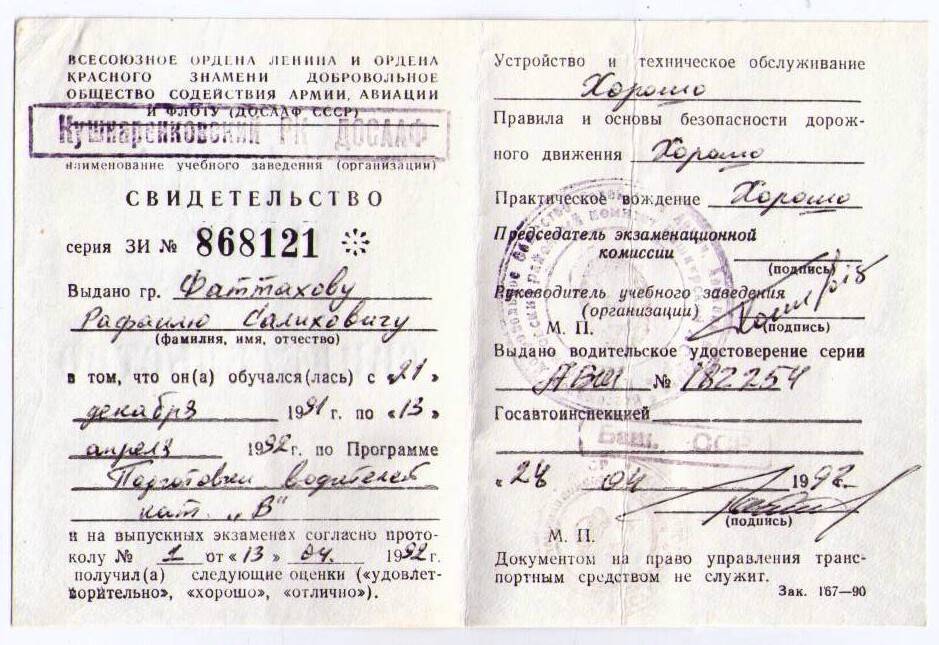 ВСЕСОЮЗНОЕ ОРДЕНА ЛЕНИНА И ОРДЕНА
КРАСНОГО ЗНАМЕНИ ДОБРОВОЛЬНОЕ
ОБЩЕСТВО СОДЕЙСТВИЯ АРМИИ, АВИАЦИИ
И ФЛОТУ (ДОСААФ СССР)
Кушнаренковский РК ДОСААФ
наименование учебного заведения (организации)
СВИДЕТЕЛЬСТВО
серия ЗИ № 868121
Выдано гр. Фаттахову
Рафаилю Салиховичу
(фамилия, имя, отчество)
в том, что он(а) обучался(лась) с «21»
декабря 1991 г. по «13»
апреля 1992 г. по Программе
Подготовки водителей
кат. „В"
и на выпускных экзаменах согласно прото-
колу № 1 от «13» 04. 1992 г.
получил(а) следующие оценки («удовлет-
ворительно», «хорошо», «отлично»).
Устройство и техническое обслуживание
Хорошо
Правила и основы безопасности дорож-
ного движения Хорошо
Практическое вождение Хорошо
Председатель экзаменационной
комиссии
(подпись)
Руководитель учебного заведения
(организации)
М. П. (подпись)
Выдано водительское удостоверение серии
АБШ № 182254
Госавтоинспекцией
Баш. ССР
«24 04 1992.
(подпись)
М. П.
Документом на право управления транс-
портным средством не служит.
Зак. 167—90